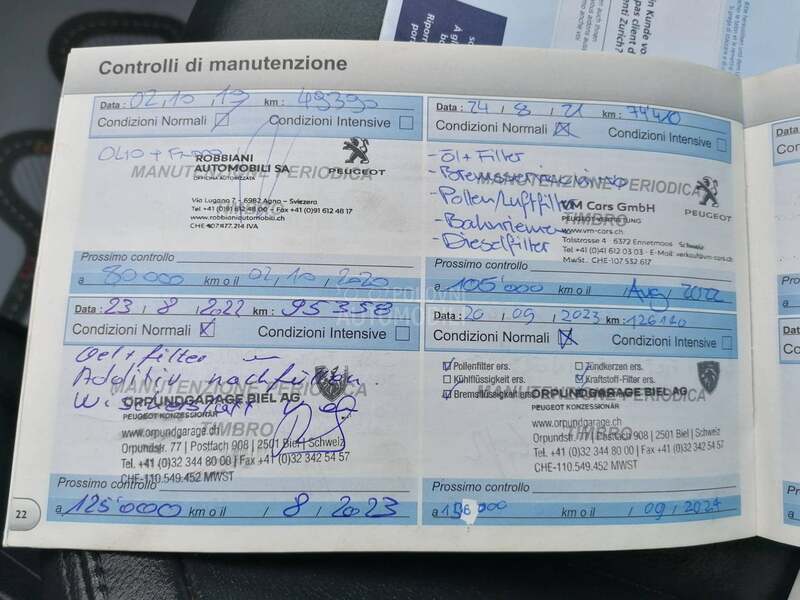 Controlli di manutenzione
Data : 02,10,19 km : 49390
Condizioni Normali Condizioni Intensive
OLIO +
ROBBIANI
AUTOMOBILI SA
OFFICINA AUTORIZZATA
PEUGEOT
MANUTENZIONE PERIODICA
Via Lugano 7 - 6982 Agno - Svizzera
Tel +41 (0)91 612 48 00 - Fax +41 (0)91 612 48 17
www.robbianiautomobili.ch
CHE 107.477.214 IVA
Prossimo controllo
a 80000 km o il 02/10/2020
Data : 24 / 8 / 21 km : 74420
Condizioni Normali Condizioni Intensive
- Öl + Filter
- Pollen/Luftfilter
- Dieselfilter
MANUTENZIONE PERIODICA
TIMBRO
VM Cars GmbH
PEUGEOT
www.vm-cars.ch
Talstrasse 4 6372 Ennetmoos Schweiz
Tel +41 (0)41 612 03 03 - E-Mail: verkauf@vm-cars.ch
MwSt. CHE-107.532.617
Prossimo controllo
a 105'000 km o il Aug / 2022
Data : 23 / 8 / 2022 km : 95358
Condizioni Normali Condizioni Intensive
Oel + filter
Additiv nachfüllen
MANUTENZIONE PERIODICA
ORPUNDGARAGE BIEL AG
PEUGEOT KONZESSIONÄR
TIMBRO
www.orpundgarage.ch
Orpundstr. 77 | Postfach 908 | 2501 Biel | Schweiz
Tel. +41 (0)32 344 80 00 | Fax +41 (0)32 342 54 57
CHE-110.549.452 MWST
Prossimo controllo
a 125'000 km o il / 8 / 2023
Data : 20 / 09 / 2023 km : 126120
Condizioni Normali Condizioni Intensive
Pollenfilter ers. Zündkerzen ers.
Kühlflüssigkeit ers. Kraftstoff-Filter ers.
Bremsflüssigkeit ers.
MANUTENZIONE PERIODICA
ORPUNDGARAGE BIEL AG
PEUGEOT KONZESSIONÄR
TIMBRO
www.orpundgarage.ch
Orpundstr. 77 | Postfach 908 | 2501 Biel | Schweiz
Tel. +41 (0)32 344 80 00 | Fax +41 (0)32 342 54 57
CHE-110.549.452 MWST
Prossimo controllo
a km o il / 09 / 2024
22
POLOVNI
AUTOMOBILI